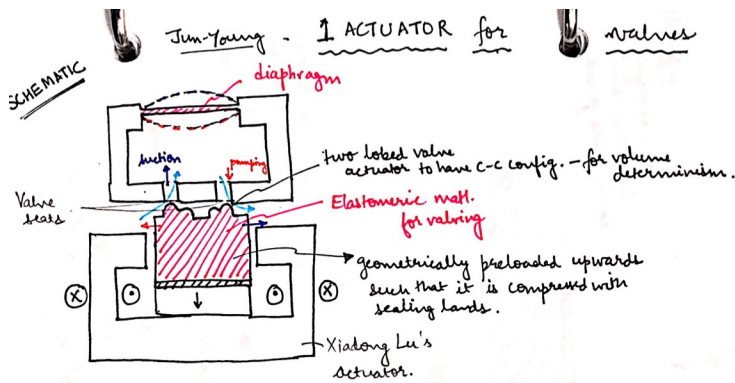 Jun-Young - 1 ACTUATOR for valves
SCHEMATIC
diaphragm
suction
pumping
two lobed valve
actuator to have C-C config. - for volume
determinism.
Valve
seats
Elastomeric matl.
for valving
geometrically preloaded upwards
such that it is compressed with
sealing lands.
Xiadong Lu's
actuator.